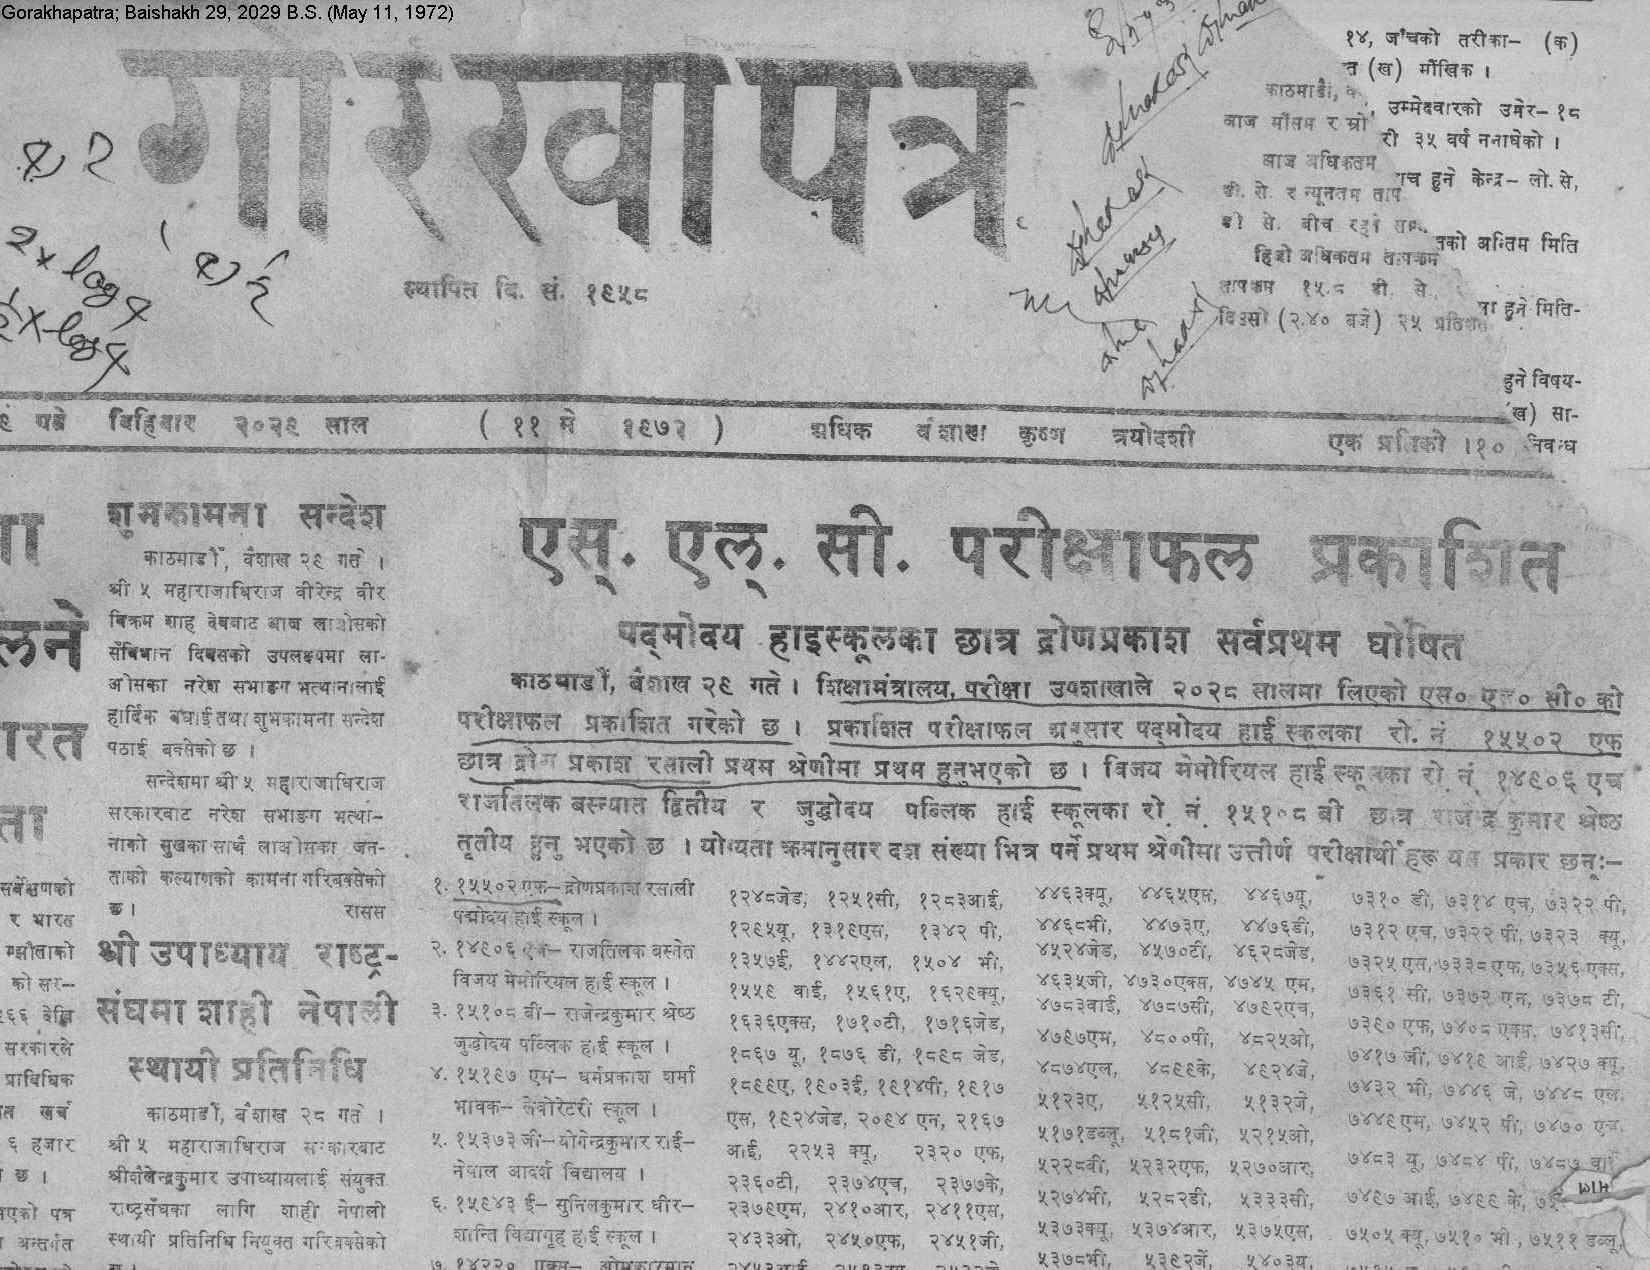 Gorakhapatra; Baishakh 29, 2029 B.S. (May 11, 1972)
गोरखापत्र
स्थापित वि. सं. १९५८
१४, जाँचको तरीका— (क)
त (ख) मौखिक ।
काठमाडौं,
उम्मेदवारको उमेर— १८
आज मौसम र
री ३५ वर्ष ननाघेको ।
आज अधिकतम
हुने केन्द्र— लो. से,
डी. से. र न्यूनतम ताप
डी से. बीच
को अन्तिम मिति
हिजो अधिकतम तापक्रम
तापक्रम १५.८ डी. से.
हुने मिति-
दिउसो (२.४० बजे) २५ प्रतिशत
हुने विषय-
(ख) सा-
निबन्ध
९ गते बिहिवार २०२९ साल ( ११ मे १९७२ ) अधिक वैशाख कृष्ण त्रयोदशी एक प्रतिको ।१०
शुभकामना सन्देश
काठमाडौं, वैशाख २९ गते ।
श्री ५ महाराजाधिराज वीरेन्द्र वीर
बिक्रम शाह देवबाट आज लाओसको
संविधान दिवसको उपलक्ष्यमा ला-
ओसका नरेश सभाङग भत्थानालाई
हार्दिक बधाई तथा शुभकामना सन्देश
पठाई बक्सेको छ ।
सन्देशमा श्री ५ महाराजाधिराज
सरकारबाट नरेश सभाङग भत्था-
नाको सुखका साथै लाओसका जन-
ताको कल्याणको कामना गरिबक्सेको
छ । रासस
श्री उपाध्याय राष्ट्र-
संघमा शाही नेपाली
स्थायी प्रतिनिधि
काठमाडौं, वैशाख २८ गते ।
श्री ५ महाराजाधिराज सरकारबाट
श्रीशैलेन्द्रकुमार उपाध्यायलाई संयुक्त
राष्ट्रसँघका लागि शाही नेपाली
स्थायी प्रतिनिधि नियुक्त गरिबक्सेको
लने
रत
ता
सर्वेक्षणको
र भारत
को सर—
सरकारले
प्राविधिक
खर्च
६ हजार
छ ।
पत्र
अन्तर्गत
एस्. एल्. सी. परीक्षाफल प्रकाशित
पद्मोदय हाइस्कूलका छात्र द्रोणप्रकाश सर्वप्रथम घोषित
काठमाडौं, वैशाख २९ गते । शिक्षामंत्रालय, परीक्षा उपशाखाले २०२८ सालमा लिएको एस० एल० सी० को
परीक्षाफल प्रकाशित गरेको छ । प्रकाशित परीक्षाफल अनुसार पद्मोदय हाई स्कूलका रो. नं १५५०२ एफ
छात्र द्रोण प्रकाश रसाली प्रथम श्रेणीमा प्रथम हुनुभएको छ । विजय मेमोरियल हाई स्कूलका रो. नं. १४९०६ एच
राजतिलक बस्न्यात द्वितीय र जुद्धोदय पब्लिक हाई स्कूलका रो. नं. १५१०८ बी छात्र राजेन्द्र कुमार श्रेष्ठ
तृतीय हुनु भएको छ । योग्यता क्रमानुसार दश संख्या भित्र पर्ने प्रथम श्रेणीमा उत्तीर्ण परीक्षार्थीहरू यस प्रकार छन्:—
१. १५५०२ एफ— द्रोणप्रकाश रसाली
पद्मोदय हाई स्कूल ।
२. १४९०६ एच— राजतिलक बस्नेत
विजय मेमोरियल हाई स्कूल ।
३. १५१०८ बी— राजेन्द्रकुमार श्रेष्ठ
जुद्धोदय पब्लिक हाई स्कूल ।
४. १५१९७ एम— धर्मप्रकाश शर्मा
भावक— लेबोरेटरी स्कूल ।
५. १५३७३ जी—योगेन्द्रकुमार राई—
नेपाल आदर्श विद्यालय ।
६. १५९४३ ई— सुनिलकुमार धीर—
शान्ति विद्यागृह हाई स्कूल ।
७. १४२२० एक्स— ओमकारमान
१२४८जेड, १२५१सी, १२८३आई,
१२९५यू, १३१९एस, १३४२ पी,
१३५७ई, १४४२एल, १५०४ भी,
१५५९ वाई, १५६१ए, १६२९क्यू,
१६३६एक्स, १७१०टी, १७१६जेड,
१८६७ यू, १८७६ डी, १८९८ जेड,
१८९९ए, १९०३ई, १९१४पी, १९१७
एस, १९२४जेड, २०९४ एन, २१६७
आई, २२५३ क्यू, २३२० एफ,
२३६०टी, २३७४एच, २३७७के,
२३७९एम, २४१०आर, २४११एस,
२४३३ओ, २४५०एफ, २४५१जी,
४४६३क्यू, ४४६५एस, ४४६७यू,
४४६८भी, ४४७३ए, ४४७६डी,
४५२४जेड, ४५७०टी, ४६२८जेड,
४६३५जी, ४७३०एक्स, ४७४५ एम,
४७८३वाई, ४७८७सी, ४७९२एच,
४७९७एम, ४८००पी, ४८२५ओ,
४८७४एल, ४८९९के, ४९२४जे,
५१२३ए, ५१२५सी, ५१३२जे,
५१७१डब्लू, ५१८१जी, ५२१५ओ,
५२२८बी, ५२३२एफ, ५२७०आर,
५२७४भी, ५२८२डी, ५३३३सी,
५३७३क्यू, ५३७४आर, ५३७५एस,
५३७८भी, ५३९२जे, ५४०३यू,
७३१० डी, ७३१४ एच, ७३२२ पी,
७३१२ एच, ७३२२ पी, ७३२३ क्यू,
७३२५ एस, ७३३८ एफ, ७३५६ एक्स,
७३६१ सी, ७३७२ एन, ७३७८ टी,
७३९० एफ, ७४०८ एक्स, ७४१३सी,
७४१७ जी, ७४१९ आई, ७४२७ क्यू,
७४३२ भी, ७४४६ जे, ७४४८ एल,
७४४९ एम, ७४५२ पी, ७४७० एच,
७४८३ यू, ७४८४ पी, ७४८७ वाई
७४९७ आई, ७४९९ के,
७५०५ क्यू, ७५१० भी, ७५११ डब्लू,